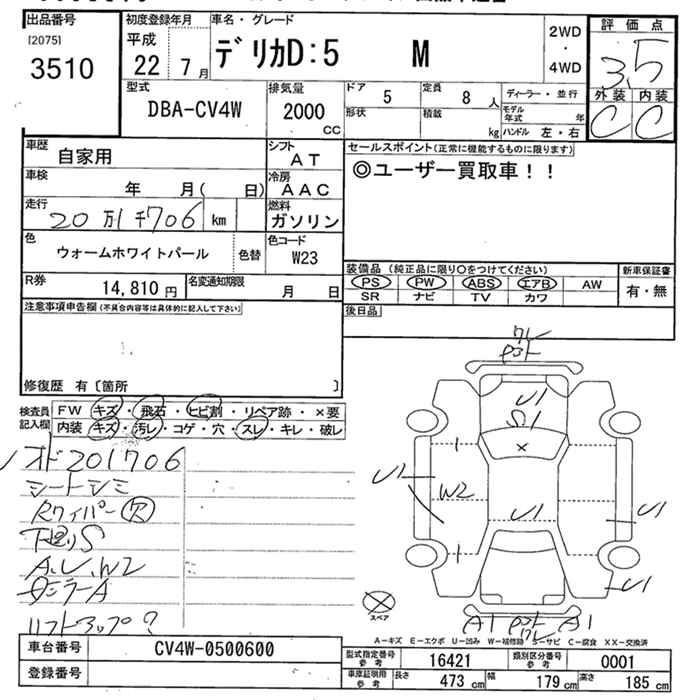 出品番号
[2075]
3510
初度登録年月
平成
22年7月
車名・グレード
デリカD:5 M
2WD
・
4WD
評価点
3.5
外装 内装
C C
型式
DBA-CV4W
排気量
2000
CC
ドア 5
定員 8人
ディーラー・並行
形状
積載 kg
モデル年式 年
ハンドル 左・右
車歴
自家用
シフト
AT
セールスポイント(正常に機能するものに限ります)
◎ユーザー買取車!!
車検
年 月( 日)
冷房
AAC
走行
20万1千706 km
燃料
ガソリン
色
ウォームホワイトパール
色替
色コード
W23
R券
14,810円
名変通知期限
月 日
装備品(純正品に限り○をつけてください)
PS PW ABS エアB AW
SR ナビ TV カワ
新車保証書
有・無
後日品
注意事項申告欄(不具合内容等は具体的に記入して下さい)
修復歴 有〔箇所 〕
検査員
記入欄
FW キズ・飛石・ヒビ割・リペア跡・×要
内装 キズ・汚レ・コゲ・穴・スレ・キレ・破レ
オド201706
シートシミ
Rワイパー欠
下廻りS
A,U,W2
ダミラーA
リフトアップ?
ワレ
U1
S1
×
U1
W2
U1
U1
U1
A1
ワレ
A1
スペア
A-キズ E-エクボ U-凹み W-補修跡 S-サビ C-腐食 XX-交換済
車台番号
CV4W-0500600
登録番号
型式指定番号
参考
16421
類別区分番号
参考
0001
車庫証明用
参考
長さ 473 cm
幅 179 cm
高さ 185 cm